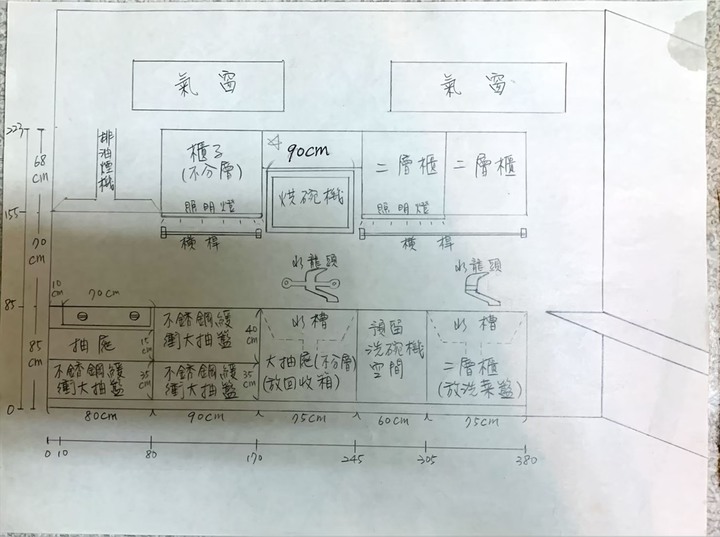 氣 窗
氣 窗
223
排油煙機
68
cm
櫃子
(不分層)
照明燈
90cm
烘碗機
二層櫃
照明燈
二層櫃
155
橫桿
橫桿
70
cm
水龍頭
水龍頭
10
cm
70cm
85
抽屜
15
cm
不銹鋼緩
衝大抽籃
40
cm
水槽
預留
洗碗機
空間
水槽
85
cm
不銹鋼緩
衝大抽籃
35
cm
不銹鋼緩
衝大抽籃
35
cm
大抽屜(不分層)
(放回收箱)
二層櫃
(放洗菜籃)
0
80cm
90cm
75cm
60cm
75cm
0 10 80 170 245 305 380